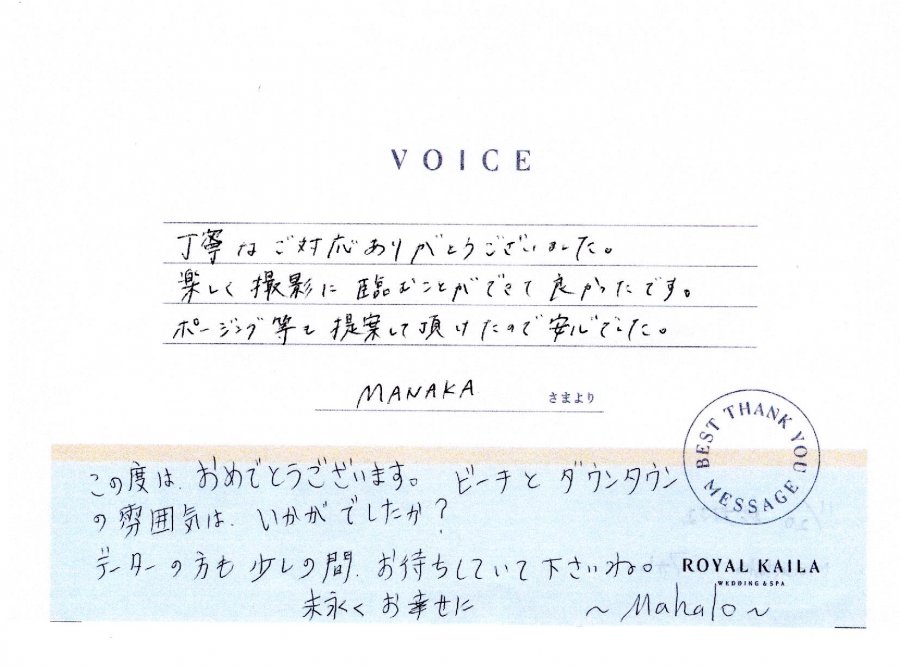 VOICE
丁寧なご対応ありがとうございました。
楽しく撮影に臨むことができて良かったです。
ポージング等も提案して頂けたので安心でした。
MANAKA さまより
BEST THANK YOU MESSAGE
この度は、おめでとうございます。 ビーチと ダウンタウン
の雰囲気は、いかがでしたか?
データーの方も少しの間、お待ちしていて下さいね。
ROYAL KAILA
WEDDING & SPA
末永く お幸せに ～Mahalo～